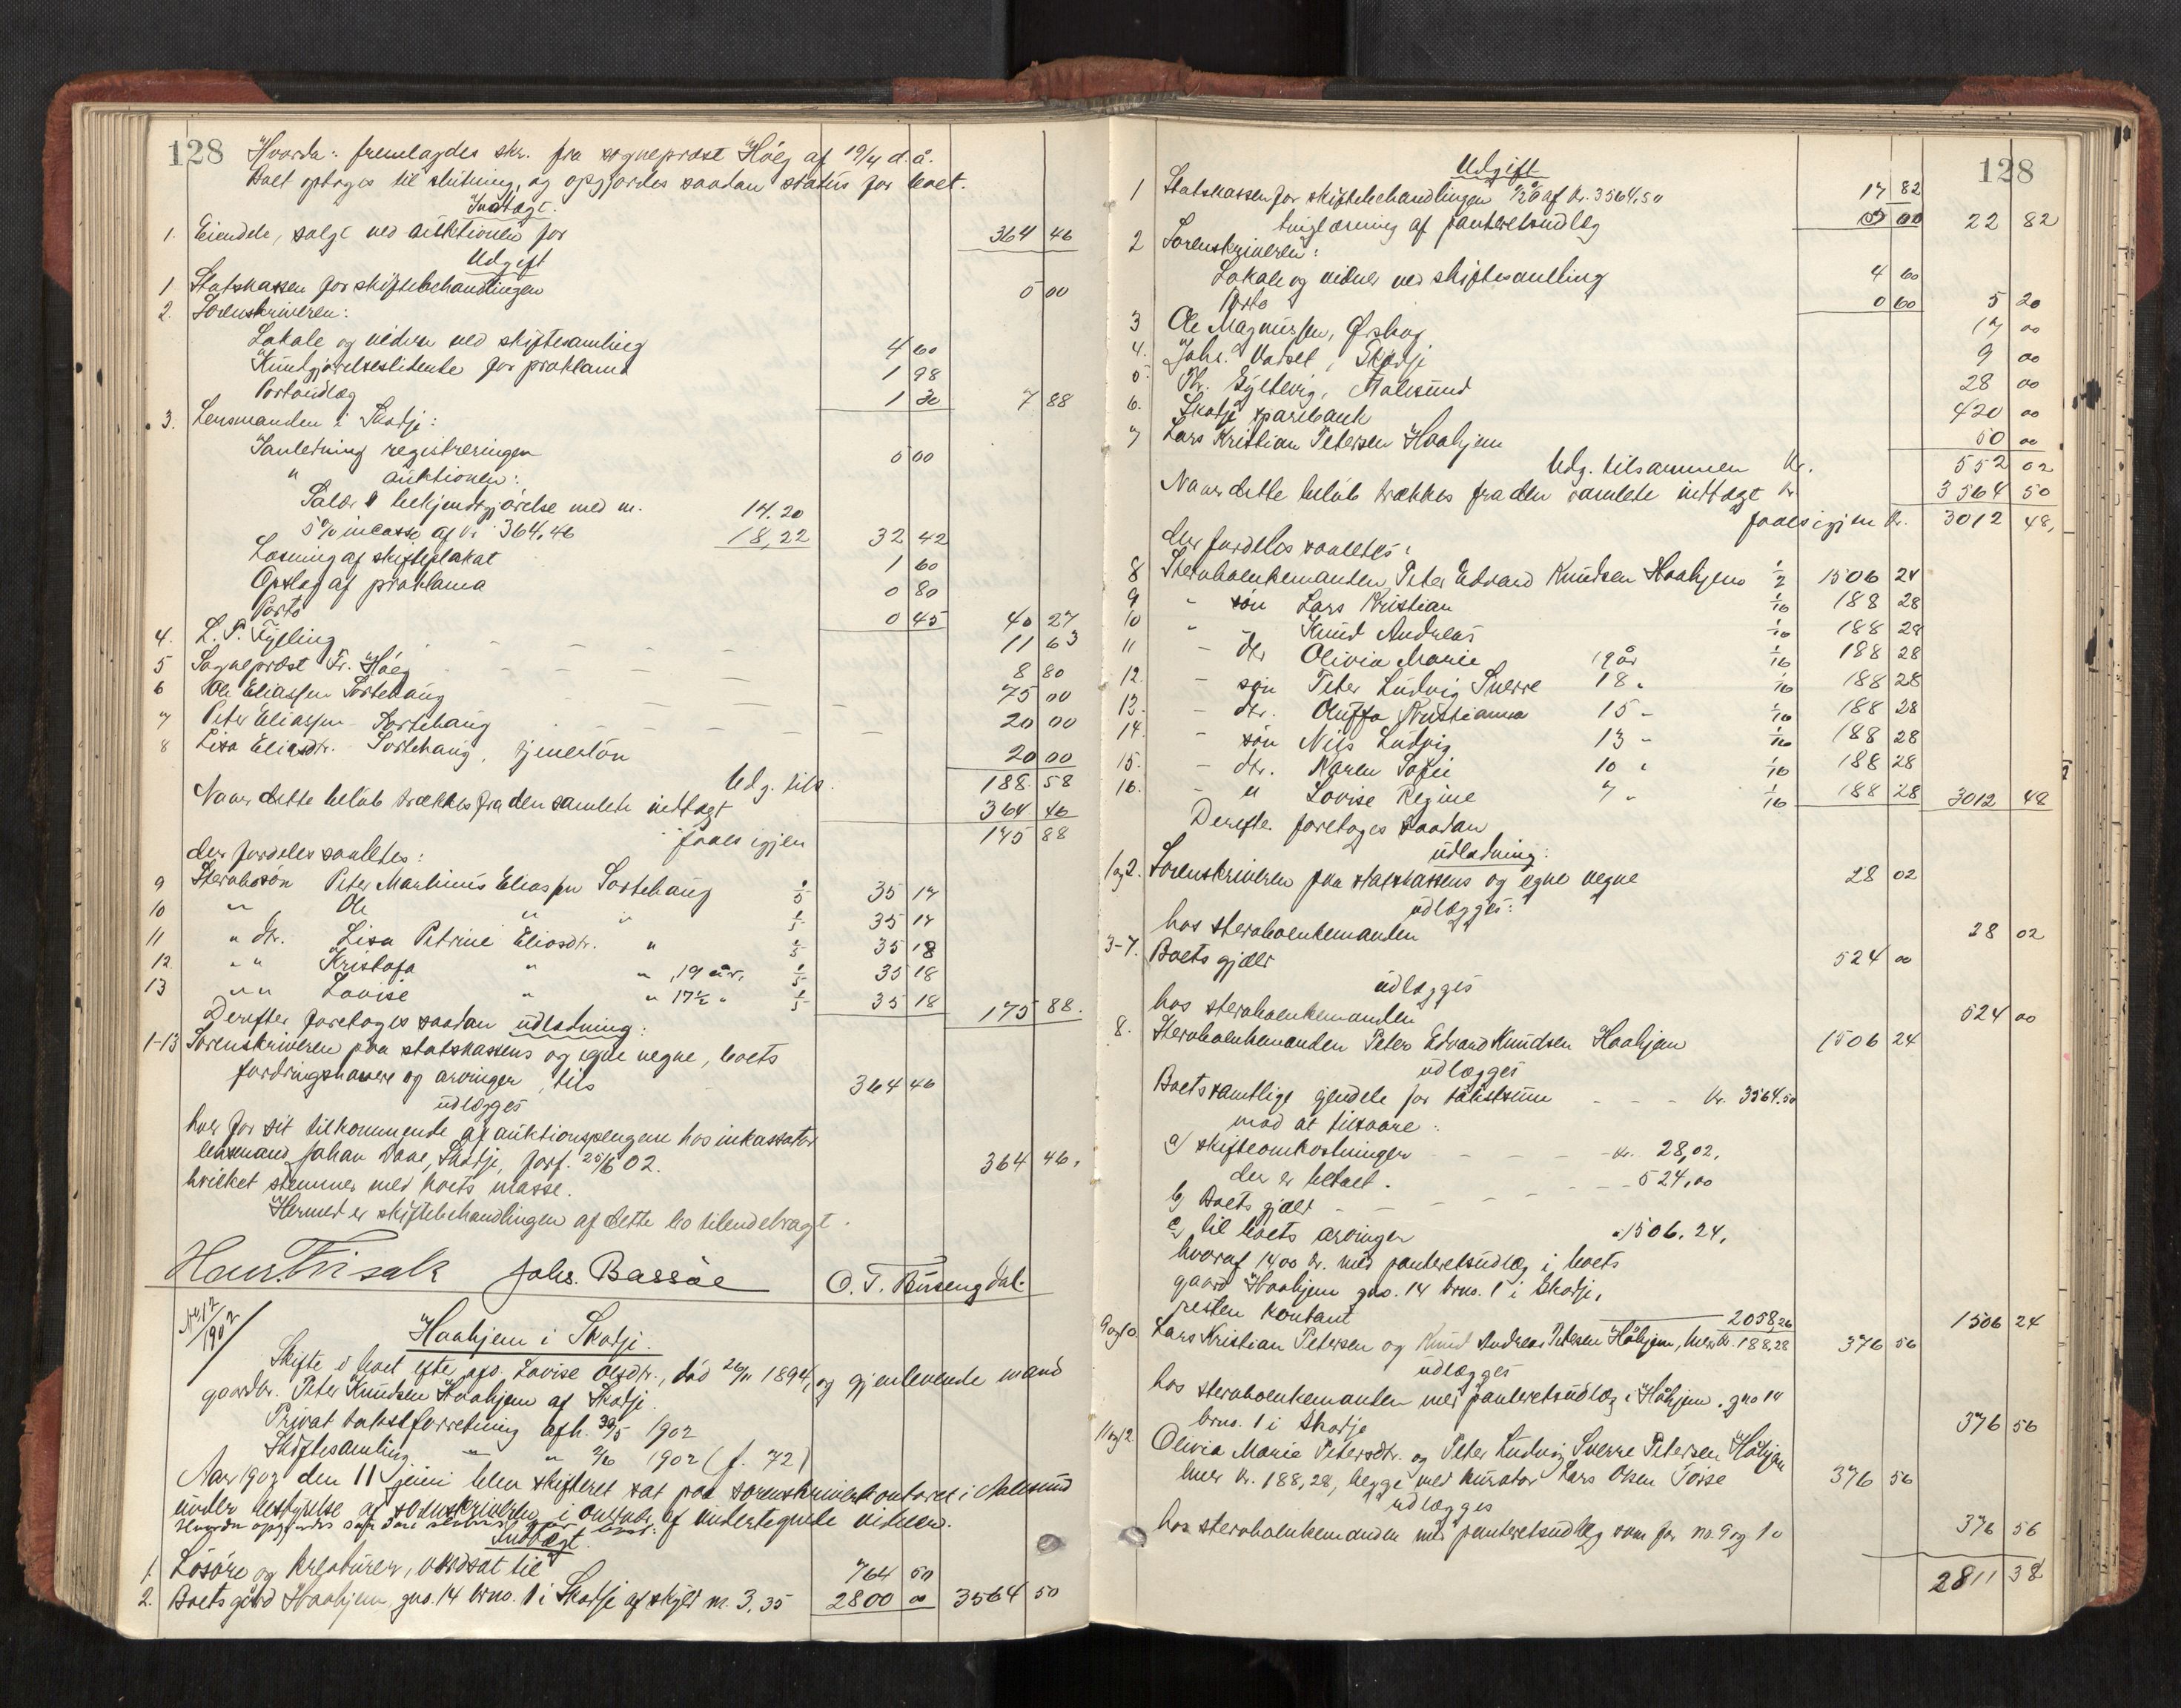 128 Hvorda: fremlagdes skr. fra sogneprest Höeg af 19/4 d. å.
Boet optoges til slutning, og opgjordes saadan status for boet.
Indtægt.
1. Eiendele, solgt ved auktionen for 364 46
Udgift
1 Statskassen for skiftebehandlingen 5 00
2. Sorenskriveren:
Lokale og vidner ved skiftesamling 4 60
Kundgjørelsestidende for proklama 1 98
Portoudlæg 1 30 7 88
3. Lensmanden i Skodje:
I anledning registreringen 5 00
" auktionen:
Salær & bekjendtgjørelse med m. 14.20
5 % incasso af kr 364,46 18,22 32 42
Læsning af skifteplakat 1 60
Opslag af proklama 0 80
Porto 0 45 40 27
4. L. P. Fylling 11 63
5 Sogneprest Fr. Höeg 8 80
6 Ole Eliassen Sortehaug 75 00
7 Peter Eliassen Sortehaug 20 00
8 Lisa Eliasdtr. Sortehaug, tjenerlön 20 00
Udg. tils. 188 58
Naar dette belöb trækkes fra den samlede indtægt 364 46
faaes igjen 175 88
der fordeles saaledes:
9 Stervbosön Peter Martinus Eliassen Sortehaug 1/5 35 17
10 " " Ole " " 1/5 35 17
11 " dtr. Lisa Petrine Eliasdtr. " 1/5 35 18
12 " " Kristofa " " 19 år, 1/5 35 18
13 " " Lovise " " 17½ " 1/5 35 18 175 88.
Derefter foretoges saadan udlodning:
1-13 Sorenskriveren paa statskassens og egne vegne, boets
fordringshavere og arvinger, tils 364 46
udlægges
hver for sit tilkommende af auktionspengene hos inkassator
lensmand Johan Vane, Skodje, forf. 25/6 02. 364 46.
hvilket stemmer med boets masse.
Hermed er skiftebehandlingen af dette bo tilendebragt.
Hans Frisak Johs. Bassöe O. T. Busengdal
No. 12/1902
Haahjem i Skodje.
Skifte i boet efter afd. Lovise Olsdtr., död 26/11 1894, og gjenlevende mand
gaardbr. Peter Knudsen Haahjem af Skodje.
Privat takstforretning afh. 30/5 1902
Skiftesamling " " 2/6 1902 (f. 72)
Aar 1902 den 11 juni blev skifteret sat paa sorenskriverkontoret i Aalesund
under bestyrelse af sorenskriveren i overvær af undertegnede vidner.
Hvorda opgjordes saadan status over boet:
Indtægt.
1. Lösöre og kreaturer, vurdsat til 764 50
2. Boets gård Haahjem, gno. 14 brno. 1 i Skodje af skyld m. 3,35 2800 00 3564 50
128
Udgift
1 Statskassen for skiftebehandlingen ½ % af kr. 3564,50 17 82
tinglæsning af panteretsudlæg 5 00 22 82
2 Sorenskriveren:
Lokale og vidner ved skiftesamling 4 60
Porto 0 60 5 20
3 Ole Magnussen, Ørskog 17 00
4. Johs. Vadset, Skodje 9 00
5. Th. Syltevig, Aalesund 28 00
6. Skodje sparebank 420 00
7 Lars Kristian Petersen Haahjem 50 00
Udg. tilsammen kr. 552 02
Naar dette belöb trækkes fra den samlede indtægt kr 3564 50
faaes igjen kr. 3012 48,
der fordeles saaledes:
8 Stervboenkemanden Peter Edvard Knudsen Haahjem 1/2 1506 24
9 " sön Lars Kristian 1/16 188 28
10 " " Knud Andreas 1/16 188 28
11 " dtr Olivia Marie 19 år 1/16 188 28
12. " sön Peter Ludvig Sverre 18 " 1/16 188 28
13. " dtr. Oluffa Kristianna 15 " 1/16 188 28
14. " sön Nils Ludvig 13 " 1/16 188 28
15. " dtr. Karen Sofie 10 " 1/16 188 28
16. " " Lovise Regine 7 " 1/16 188 28 3012 48
Derefter foretoges saadan
udlodning:
1 og 2. Sorenskriveren paa statskassens og egne vegne 28 02
udlægges:
hos stervboenkemanden 28 02
3-7. Boets gjæld 524 00
udlægges
hos stervboenkemanden 524 00
8. Stervboenkemanden Peter Edvard Knudsen Haahjem 1506 24
udlægges
Boets samtlige eiendele for takstsum kr. 3564.50
mod at tilsvare:
a) skifteomkostninger kr. 28,02,
der er betalt.
b) Boets gjæld 524,00
c) til boets arvinger " 1506.24,
hvoraf 1400 kr. med panteretsudlæg i boets
gaard Haahjem gno. 14 brno. 1 i Skodje,
resten kontant 2058,26 1506 24
9 og 10. Lars Kristian Petersen og Knud Andreas Petersen Håhjem, hver kr. 188,28 376 56
udlægges
hos stervboenkemanden med panteretsudlæg i Håhjem, gno 14
brno. 1 i Skodje 376 56
11 og 12. Olivia Marie Petersdtr. og Peter Ludvig Sverre Petersen Håhjem
hver kr. 188,28, begge med kurator Lars Olsen Töise 376 56
udlægges
hos stervboenkemanden med panteretsudlæg som for no. 9 og 10 376 56
2811 38